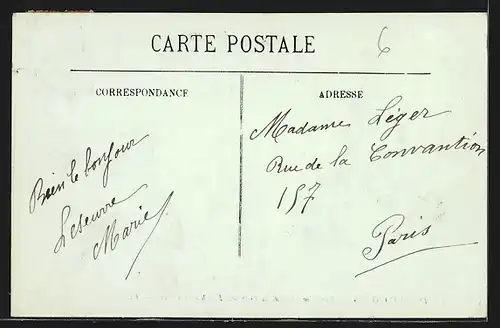 CARTE POSTALE
6
CORRESPONDANCE
ADRESSE
Bien le bonjour
Leseuvre
Marie
Madame Léger
Rue de la Convantion
157
Paris